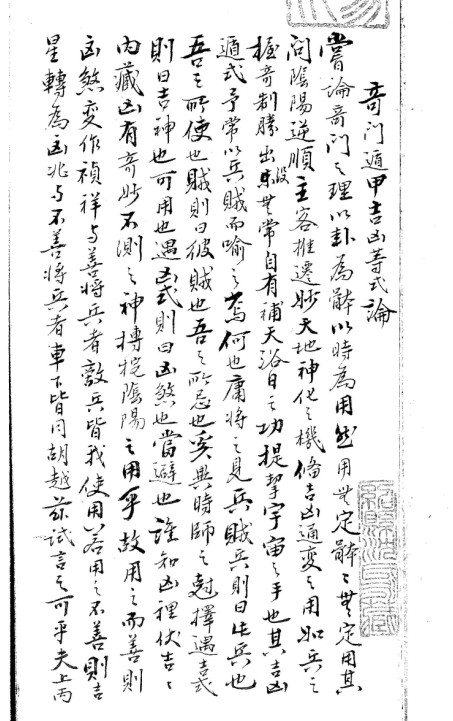 奇门遁甲吉凶等式論
嘗論奇门之理以卦為體以時為用然用無定體〻無定用其
间陰陽逆順主客推遷妙天地神化之機俻吉凶通变之用如兵之
握奇制勝出没無常自有補天浴日之功提挈宇宙之手也其吉凶
遁式予常以兵賊而喻之焉何也庸将之見兵賊兵則曰此兵也
吾之所使也賊則曰彼賊也吾之所忌也奚異時師之尅擇遇吉式
則曰吉神也可用也遇凶式則曰凶煞也當避也誰知凶裡伏吉〻
内藏凶有奇妙不測之神摶捖陰陽之用乎故用之而善則
凶煞变作禎祥与善将兵者敵兵皆我使用若用之不善則吉
星轉為凶兆与不善将兵者車下皆同胡越茲试言之可乎夫上丙